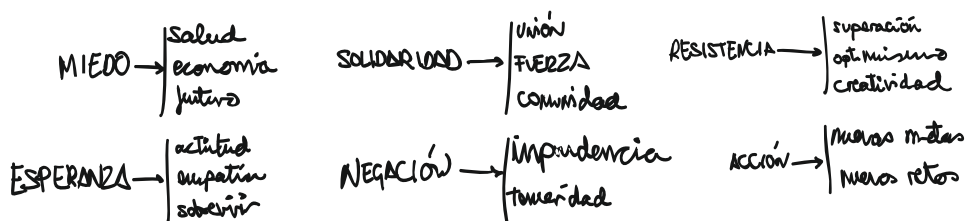 MIEDO → salud
economía
futuro
SOLIDARIDAD → UNIÓN
FUERZA
comunidad
RESISTENCIA → superación
optimismo
creatividad
ESPERANZA → actitud
empatía
sobrevivir
NEGACIÓN → impudencia
temeridad
ACCIÓN → nuevas metas
nuevos retos